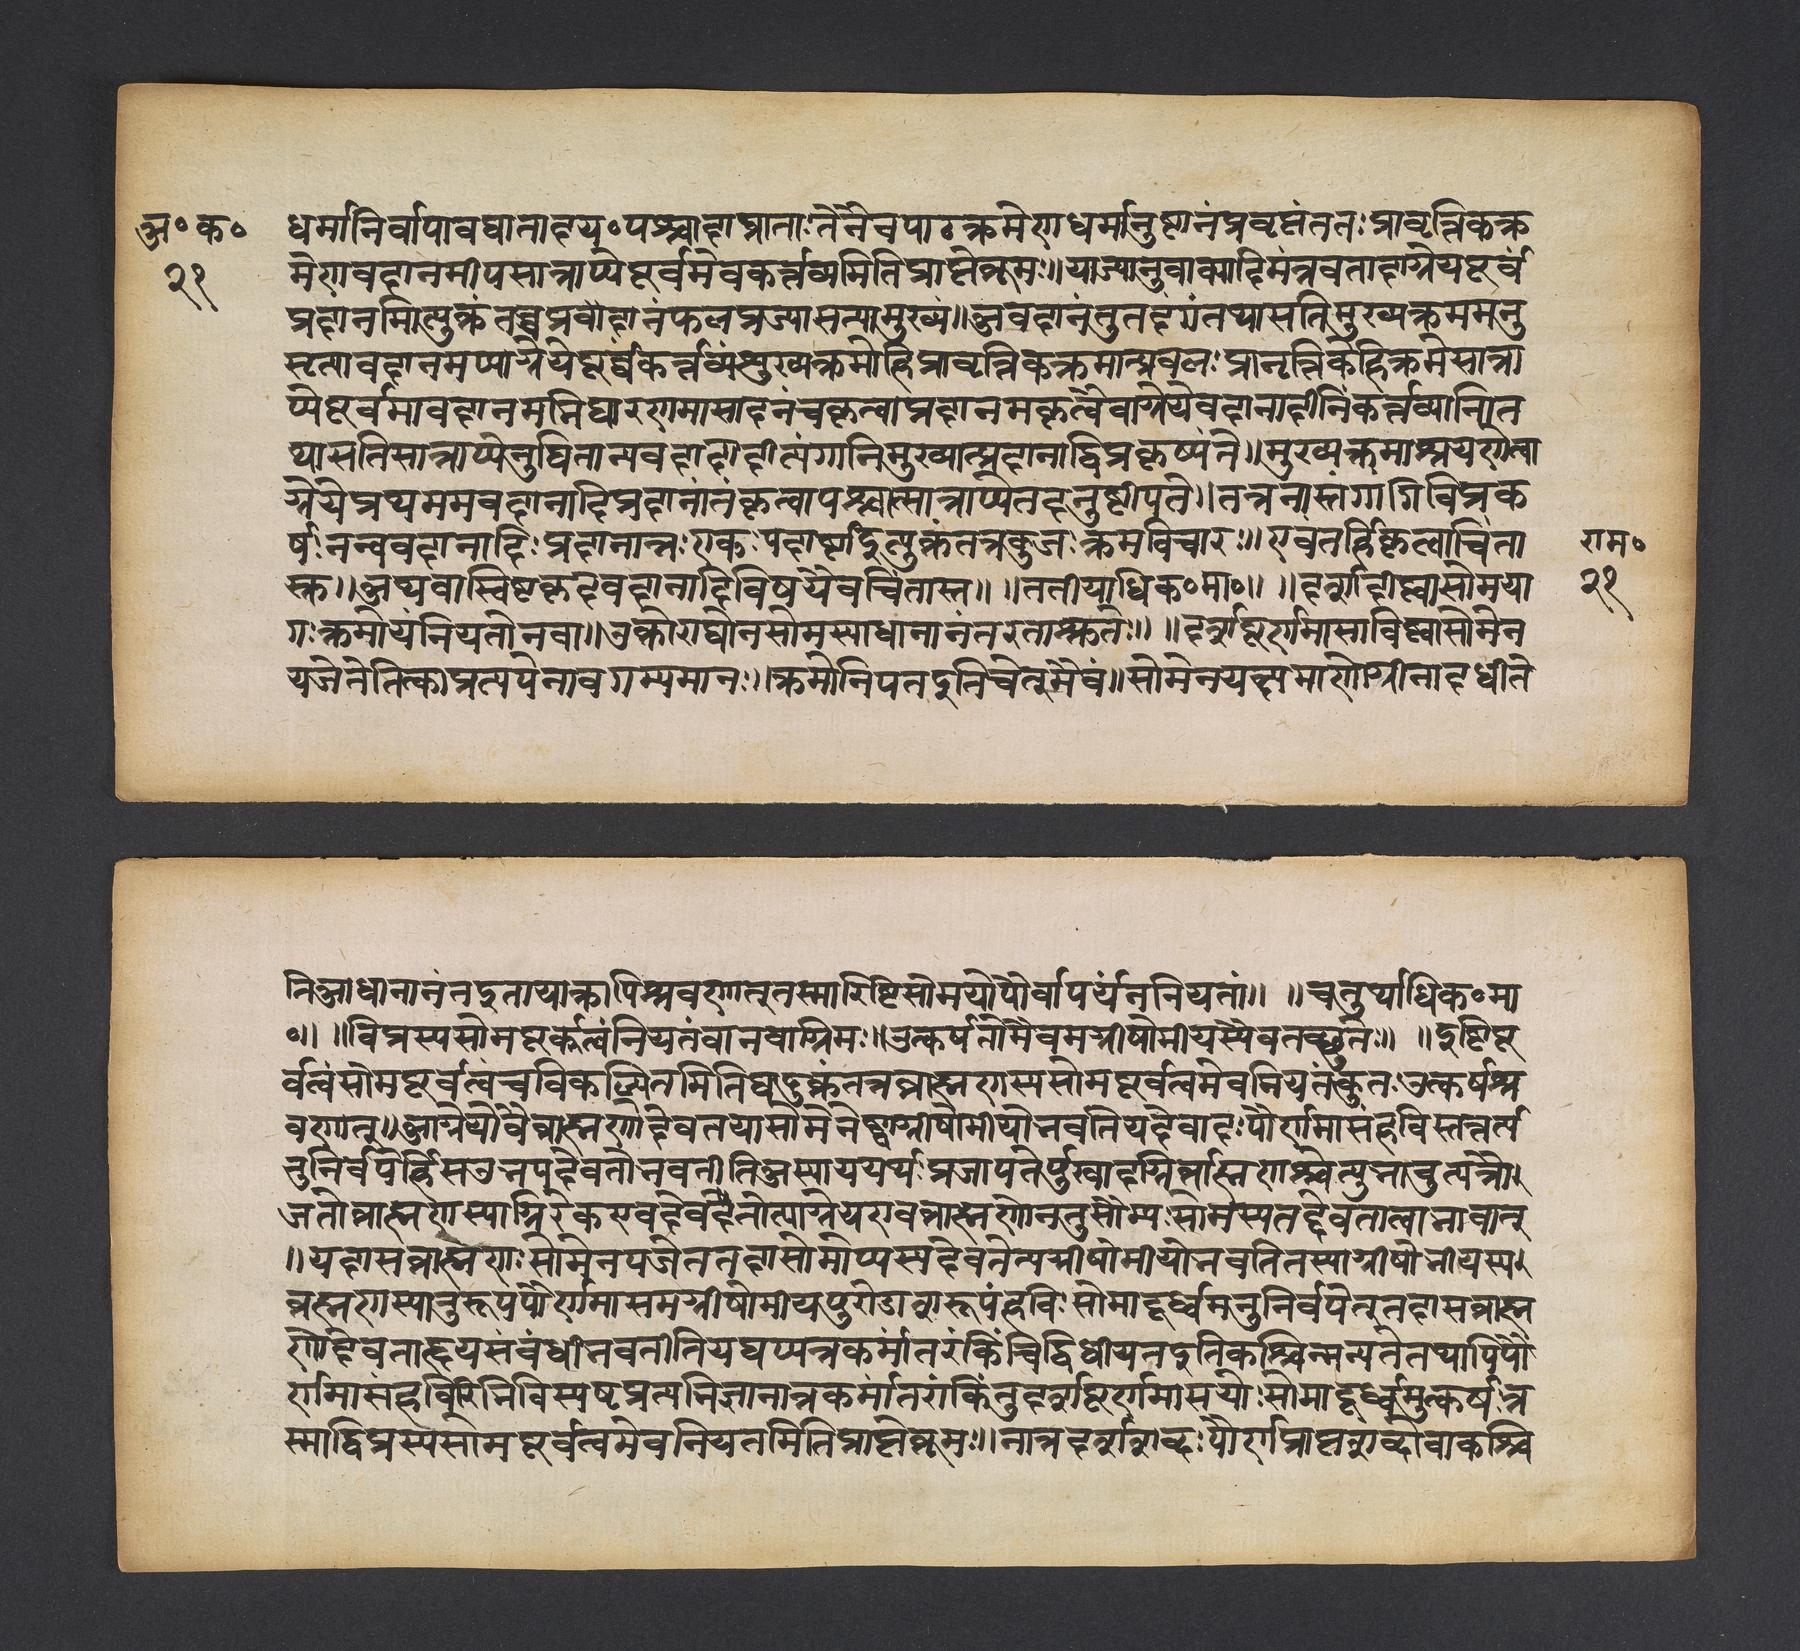 अ॰क॰
२१
धर्मानिर्वापावघातादय॰पश्चादाघ्राताःतेनैवपाठक्रमेणधर्मानुष्टानंप्रवृत्तंततःप्रावृत्तिकक्र
मेणावदानमपिसान्नाय्येपूर्वमेवकर्त्तव्यमितिप्राप्तेब्रूमः॥याज्यानुवाक्यादिमंत्रवतादाग्नेयपूर्वं
प्रदानमित्युक्तंतच्चप्रदानंफलप्रत्यासत्यामुख्यं॥अवदानंतुतदंगंतथासतिमुख्यक्रममनु
सृत्यावदानमप्याग्नेयेपूर्वंकर्त्तव्यंमुख्यक्रमोहिप्रावृत्तिकक्रमात्प्रबलःप्रावृत्तिकेहिक्रमेसान्ना
य्येपूर्वमावदानमभिघारणमासादनंचकृत्वाप्रदानमकृत्वैवाग्नेयेवदानादीनिकर्त्तव्यानित
थासतिसान्नाय्येनुष्ठितान्यवदानादीन्यंगानिमुख्यात्प्रदानाद्विप्रकृष्यंते॥मुख्यक्रमाश्रयणेत्वा
ग्नेयेप्रथममवदानादिप्रदानांतंकृत्वापश्चात्सान्नाय्येतदनुष्टीयते॥तत्रनास्त्यंगांगिविप्रक
र्षःनन्ववदानादिःप्रदानान्तःएकःपदार्थइत्युक्तंतत्रकुतःक्रमविचारः॥एवंतर्हिकृत्वाचिंता
स्तु॥अथवास्विष्टकृदवदानादिविषयैवचिंतास्तु॥ ॥तृतीयाधिक॰मा॰॥ ॥दर्शादीष्ट्वासोमया
गःक्रमोयंनियतोनवा॥उक्तेराद्योनसोमस्याधानानंतरताश्रुतेः॥ ॥दर्शपूर्णमासाविष्ट्वासोमेन
यजेतेतिक्त्काप्रत्ययेनावगम्यमानः॥क्रमोनियतइतिचेत्मैवं॥सोमेनयक्ष्यमाणोग्नीनादधीते
राम॰
२१
तिआधानानंतरइतायाक्रापिश्रवणात्तस्मादिष्टिसोमयोपौर्वापर्यंननियतां॥ ॥चतुर्थाधिक॰मा
॰॥ ॥विप्रस्यसोमपूर्वत्वंनियतंवानवाग्रिमः॥उत्कर्षतोमैवमग्नीषोमीयस्यैवतच्छ्रुतेः॥ ॥इष्टिपू
र्वत्वंसोमपूर्वत्वंचविकल्पितमितियदुक्तंतत्रब्राह्मणस्यसोमपूर्वत्वमेवनियतंकुतःउत्कर्षश्र
वणात्॥आग्नेयोवैब्राह्मणोदेवतयासोमेनेष्ट्वाग्नीषोमीयोभवतियदेवादःपौर्णमासंहविस्तत्तर्ह्य
नुनिर्वपेत्तर्हिसउभयदेवतोभवतीतिअस्यायमर्थःप्रजापतेर्मुखादग्निर्ब्राह्मणश्चेत्युभावुत्पन्नौ।
अतोब्राह्मणस्याग्निरेकएवदेवतेत्याग्नेयएवब्राह्मणोनतुसौम्यःसोमस्यतद्देवतात्वाभावात्
॥यदासब्राह्मणःसोमेनयजेततदासोमोप्यस्यदेवतेत्यग्नीषोमीयोभवतितस्याग्नीषोमीयस्य
ब्राह्मणस्यानुरूपंपौर्णमासमग्नीषोमीयपुरोडाशरूपंहविःसोमादूर्ध्वमनुनिर्वपेत्तदासब्राह्म
णोदेवताद्वयसंबंधीभवतीतियद्यप्यत्रकर्मांतरंकिंचिद्विधीयतइतिकश्चिन्मन्यतेतथापिपौ
र्णमासंहविरितिविस्पष्टप्रत्यभिज्ञानान्नकर्मांतरंकिंतुदर्शपूर्णमासयोःसोमादूर्ध्वमुत्कर्षःत
स्माद्विप्रस्यसोमपूर्वत्वमेवनियतमितिप्राप्तेब्रूमः॥नात्रदर्शशब्दःपौर्णप्राप्तशब्दोवाकश्चि